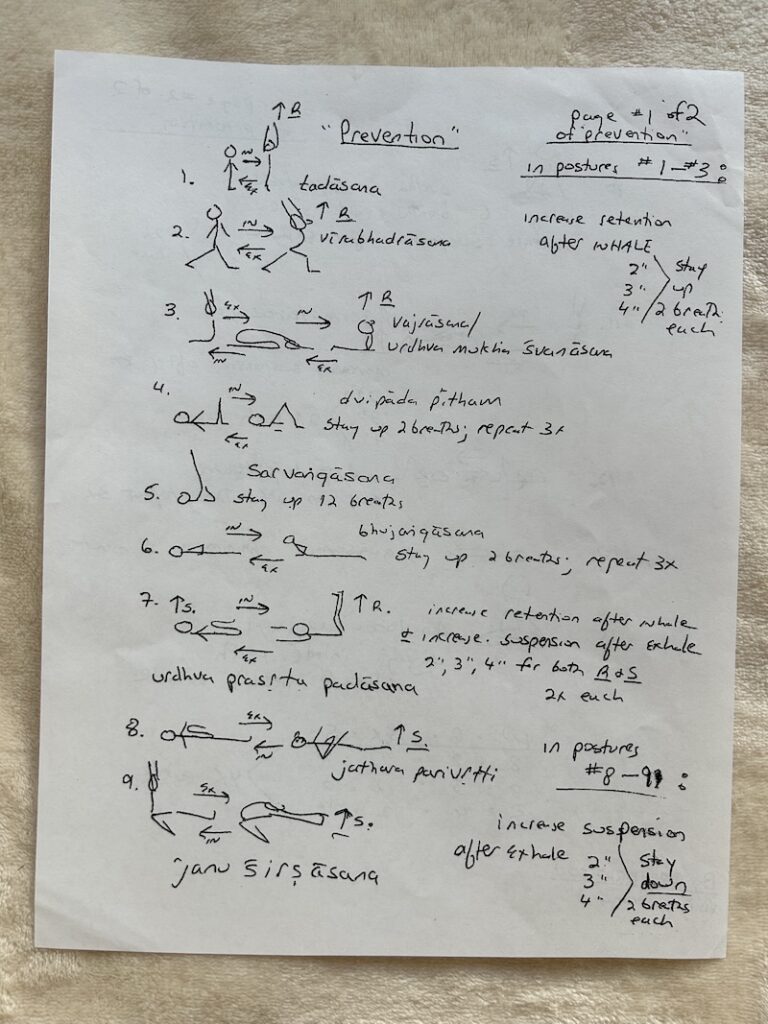 page #1 of 2
of "prevention"
"Prevention"
in postures #1-#3:
↑ R
IN
EX
1. tadāsana
increase retention
after INHALE
2" stay
3" up
4" 2 breaths
each
↑ R
IN
EX
2. vīrabhadrāsana
3. EX IN ↑ R
vajrāsana/
urdhva mukha śvanāsana
IN EX
4. IN dvipāda pītham
EX stay up 2 breaths; repeat 3x
sarvaṅgāsana
5. stay up 12 breaths
6. IN bhujaṅgāsana
EX stay up 2 breaths; repeat 3x
7. ↑ S. IN ↑ R.
EX
increase retention after inhale
& increase suspension after exhale
2", 3", 4" for both R & S
2x each
urdhva prasṛta padāsana
8. EX ↑ S.
IN
jathara parivṛtti
in postures
#8-9:
9. EX ↑ S.
IN
janu śirṣāsana
increase suspension
after exhale
2" stay
3" down
4" 2 breaths
each